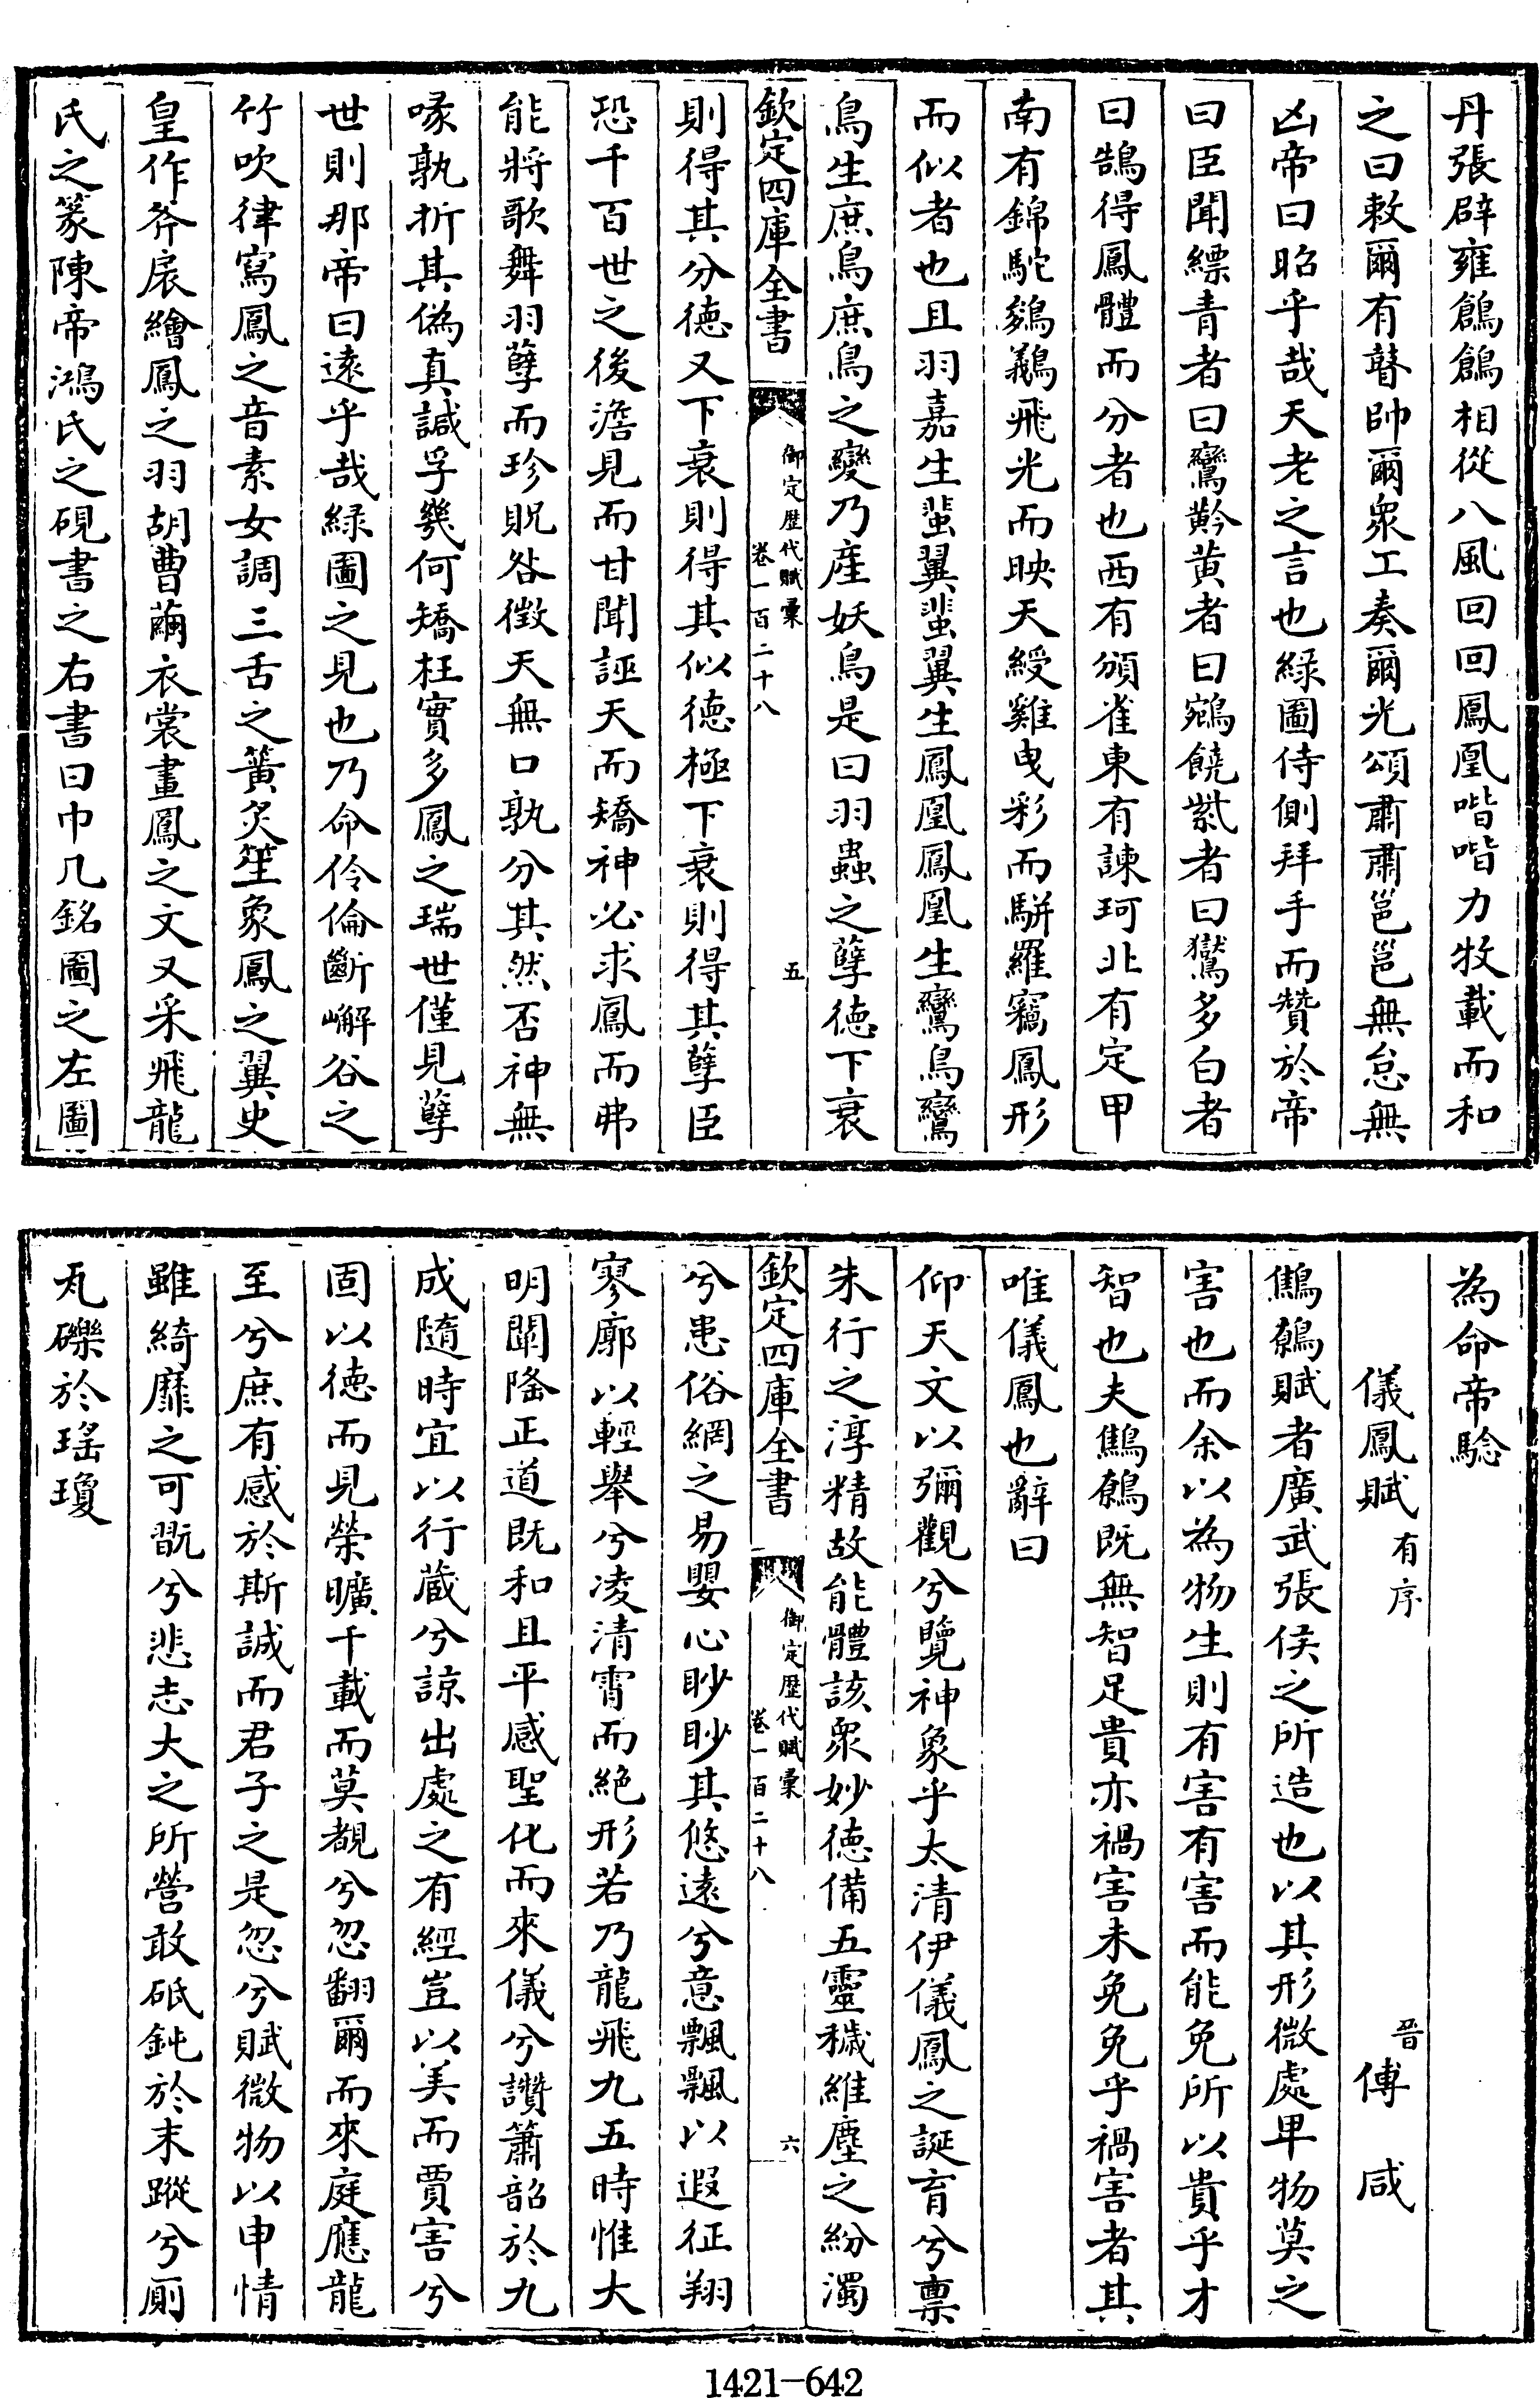 丹張辟雍鶬鶬相從八風回回鳳凰喈喈力牧載而和
之曰敕爾有瞽帥爾眾工奏爾光頌肅肅邕邕無怠無
凶帝曰昭乎哉天老之言也綠圖侍側拜手而贊於帝
曰臣聞縹青者曰鸞黅黃者曰鵷饒紫者曰鸑多白者
曰鵠得鳳體而分者也西有頒雀東有諫珂北有定甲
南有錦駝鵕鸃飛光而映天綬雞曳彩而駢羅竊鳳形
而似者也且羽嘉生蜚翼蜚翼生鳳凰鳳凰生鸞鳥鸞
鳥生庶鳥庶鳥之變乃產妖鳥是曰羽蟲之孽德下衰
欽定四庫全書
御定歷代賦彙
卷一百二十八
五
則得其分德又下衰則得其似德極下衰則得其孽臣
恐千百世之後澹見而甘聞誣天而矯神必求鳳而弗
能將歌舞羽孽而珍貺咎徵天無口孰分其然否神無
喙孰折其偽真諴孚幾何矯枉實多鳳之瑞世僅見孽
世則那帝曰遠乎哉綠圖之見也乃命伶倫斷嶰谷之
竹吹律寫鳳之音素女調三舌之簧炙笙象鳳之翼史
皇作斧扆繪鳳之羽胡曹繭衣裳畫鳳之文又采飛龍
氏之篆陳帝鴻氏之硯書之右書曰巾几銘圖之左圖
為命帝騐
儀鳳賦 有序 晉 傅咸
鷦鷯賦者廣武張侯之所造也以其形微處卑物莫之
害也而余以為物生則有害有害而能免所以貴乎才
智也夫鷦鷯既無智足貴亦禍害未免免乎禍害者其
唯儀鳳也辭曰
仰天文以彌觀兮覽神象乎太清伊儀鳳之誕育兮稟
朱行之淳精故能體該眾妙德備五靈穢維塵之紛濁
欽定四庫全書
御定歷代賦彙
卷一百二十八
六
兮患俗網之易嬰心眇眇其悠遠兮意飄飄以遐征翔
寥廓以輕舉兮凌清霄而絕形若乃龍飛九五時惟大
明闡隆正道既和且平感聖化而來儀兮讚簫韶於九
成隨時宜以行藏兮諒出處之有經豈以美而賈害兮
固以德而見榮曠千載而莫覩兮忽翻爾而來庭應龍
至兮庶有感於斯誠而君子之是忽兮賦微物以申情
雖綺靡之可翫兮悲志大之所營敢砥鈍於末蹤兮廁
瓦礫於瑤瓊
1421-642